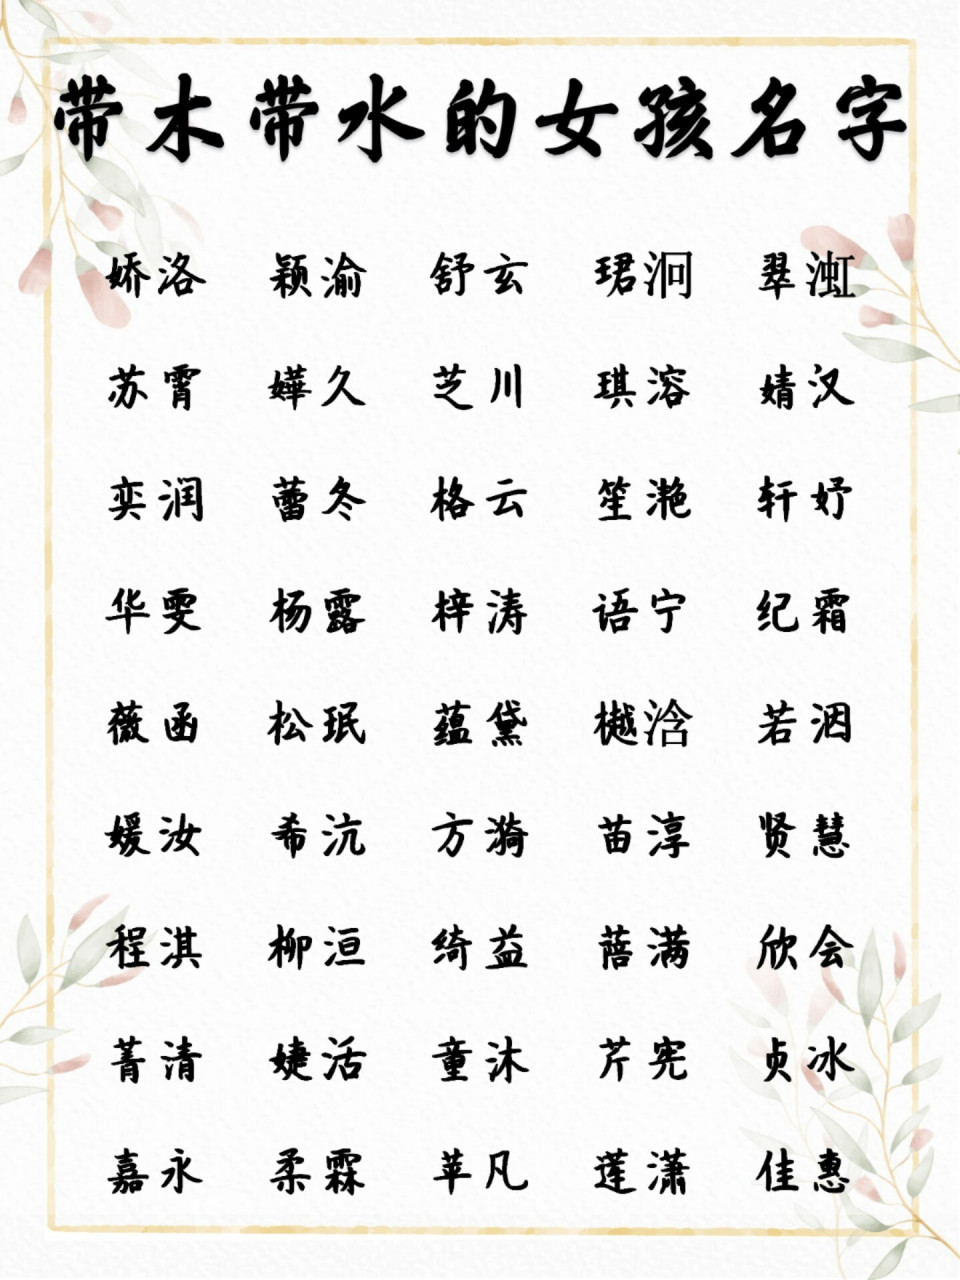 带木带水的女孩名字
娇洛 颖渝 舒玄 珺泂 翠渱
苏霄 嬅久 芝川 琪溶 婧汉
奕润 蕾冬 格云 笙滟 轩妤
华雯 杨露 梓涛 语宁 纪霜
薇函 松珉 蕴黛 樾浛 若洇
媛汝 希沆 方漪 苗淳 贤慧
程淇 柳洹 绮益 蓓满 欣会
菁清 婕活 童沐 芹宪 贞冰
嘉永 柔霖 苹凡 莲潇 佳惠